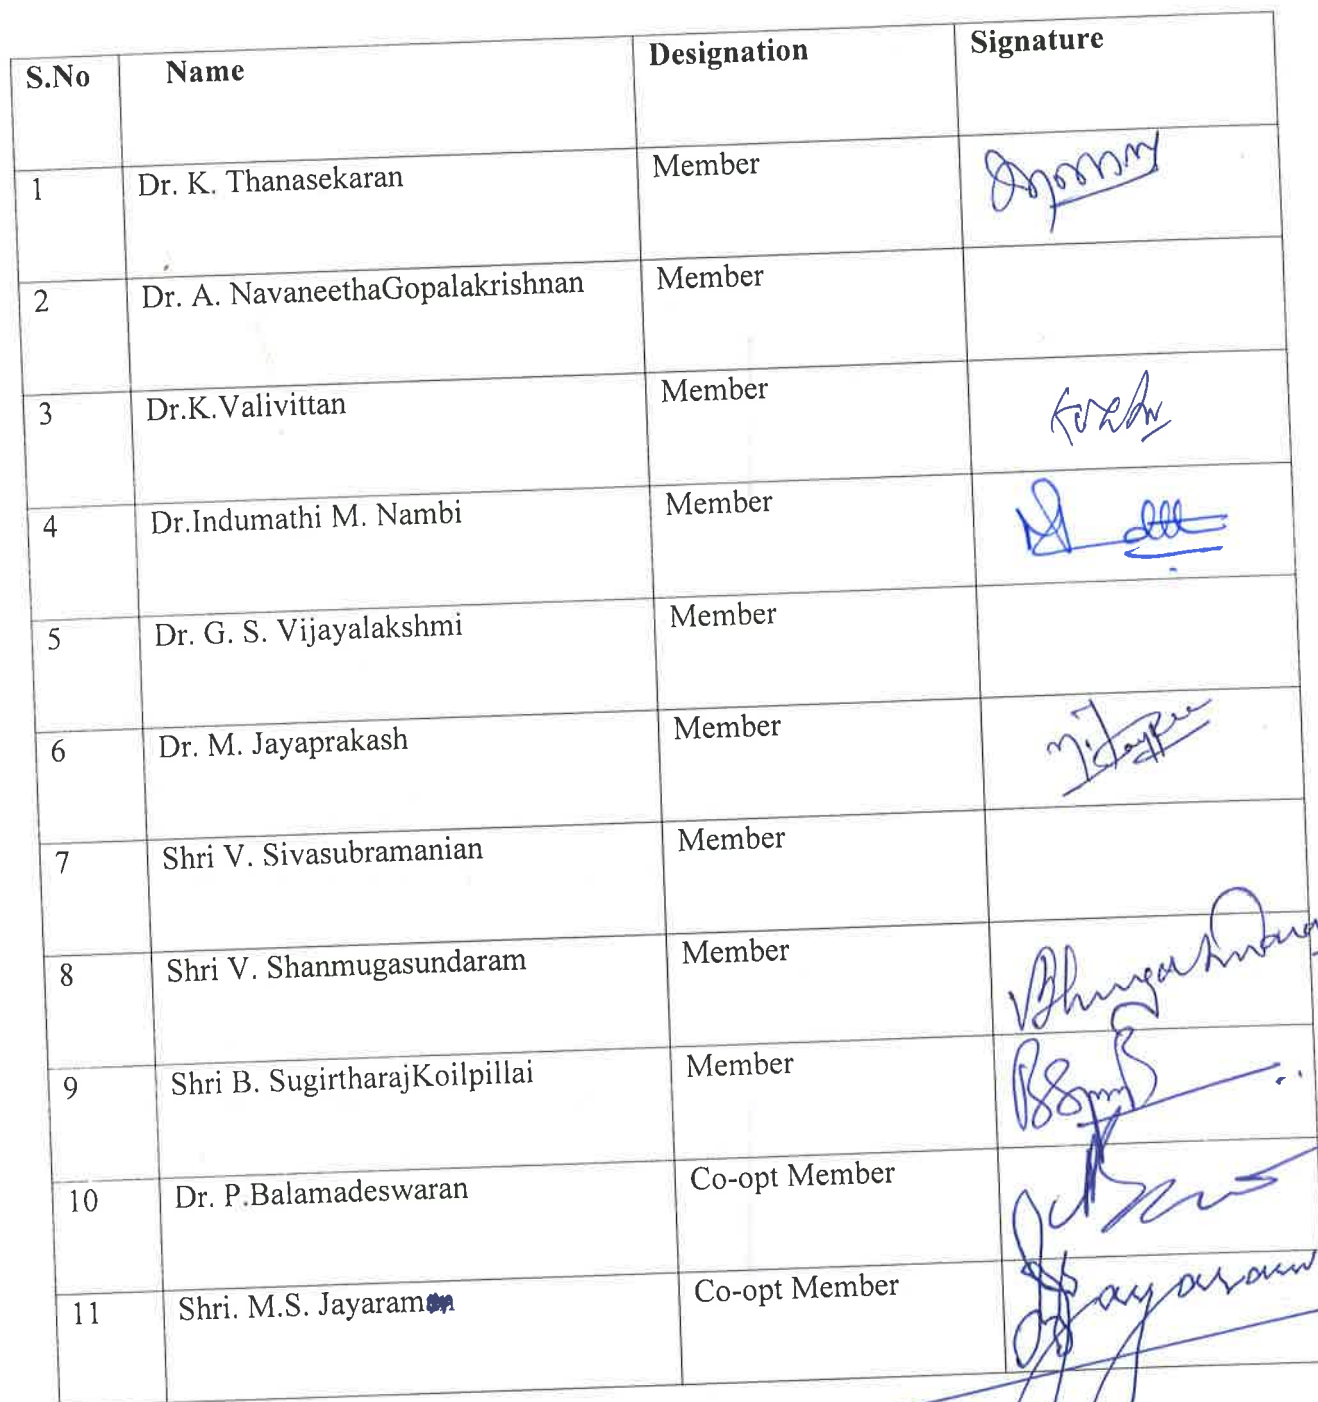 S.No Name Designation Signature
1 Dr. K. Thanasekaran Member
2 Dr. A. NavaneethaGopalakrishnan Member
3 Dr.K.Valivittan Member
4 Dr.Indumathi M. Nambi Member
5 Dr. G. S. Vijayalakshmi Member
6 Dr. M. Jayaprakash Member
7 Shri V. Sivasubramanian Member
8 Shri V. Shanmugasundaram Member
9 Shri B. SugirtharajKoilpillai Member
10 Dr. P.Balamadeswaran Co-opt Member
11 Shri. M.S. Jayaram Co-opt Member